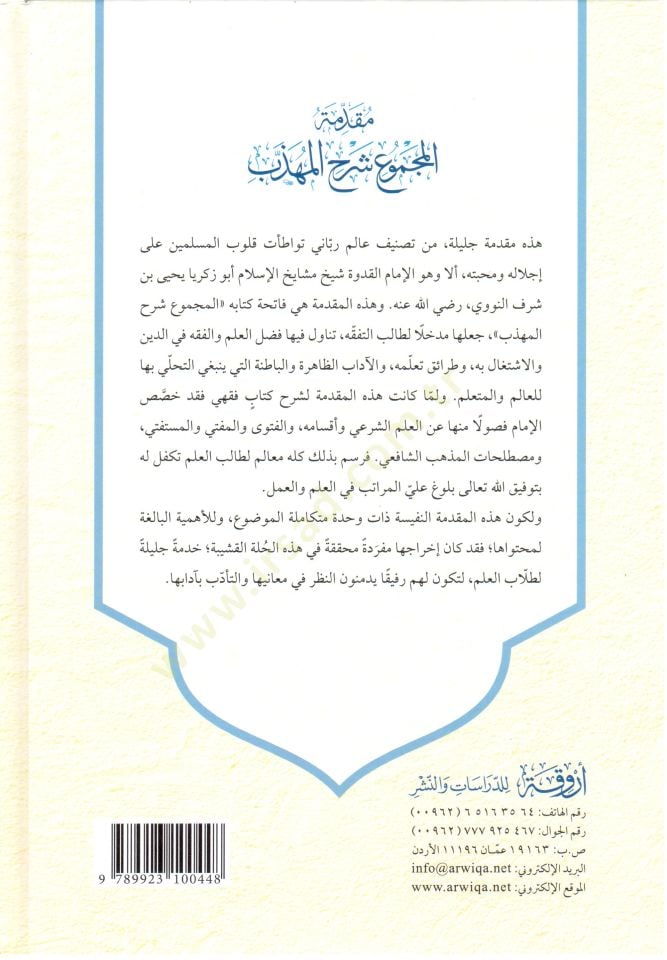 مُقَدِّمَة
المَجْمُوع شَرْح المُهَذَّب
هذه مقدمة جليلة، من تصنيف عالم ربّاني تواطأت قلوب المسلمين على
إجلاله ومحبته، ألا وهو الإمام القدوة شيخ مشايخ الإسلام أبو زكريا يحيى بن
شرف النووي، رضي الله عنه. وهذه المقدمة هي فاتحة كتابه «المجموع شرح
المهذب»، جعلها مدخلًا لطالب التفقّه، تناول فيها فضل العلم والفقه في الدين
والاشتغال به، وطرائق تعلّمه، والآداب الظاهرة والباطنة التي ينبغي التحلّي بها
للعالم والمتعلم. ولمّا كانت هذه المقدمة لشرح كتابٍ فقهي فقد خصَّص
الإمام فصولًا منها عن العلم الشرعي وأقسامه، والفتوى والمفتي والمستفتي،
ومصطلحات المذهب الشافعي. فرسم بذلك كله معالم لطالب العلم تكفل له
بتوفيق الله تعالى بلوغ عليّ المراتب في العلم والعمل.
ولكون هذه المقدمة النفيسة ذات وحدة متكاملة الموضوع، وللأهمية البالغة
لمحتواها؛ فقد كان إخراجها مفرَدةً محققةً في هذه الحُلة القشيبة؛ خدمةً جليلةً
لطلّاب العلم، لتكون لهم رفيقًا يدمنون النظر في معانيها والتأدّب بآدابها.
www.irsadi.com.tr
أروقة للدِّرَاسَاتِ وَالنَّشْرِ
رقم الهاتف: ٦٤ ٣٥ ١٦ ٥ ٦ (٠٠٩٦٢)
رقم الجوال: ٤٦٧ ٩٢٥ ٧٧٧ (٠٠٩٦٢)
ص.ب: ١٩١٦٣ عمّان ١١١٩٦ الأردن
البريد الإلكتروني: info@arwiqa.net
الموقع الإلكتروني: www.arwiqa.net
9 789923 100448